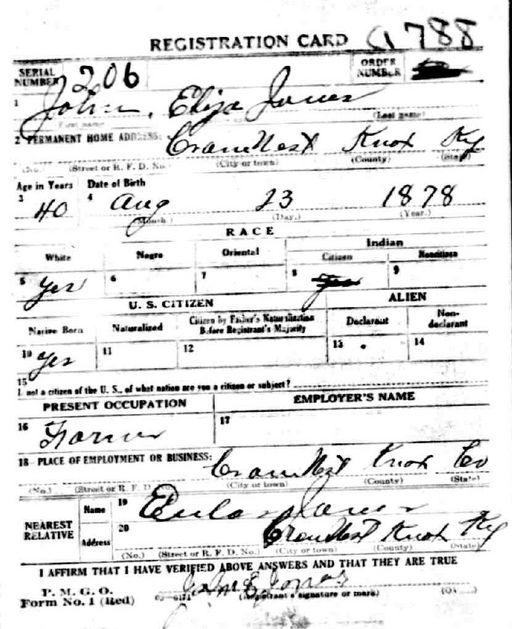 REGISTRATION CARD A788
SERIAL NUMBER 206 ORDER NUMBER
1 John Eliza Jones
(First name) (Last name)
2 PERMANENT HOME ADDRESS: Crane Nest Knox Ky
(No.) (Street or R. F. D. No.) (City or town) (County) (State)
Age in Years Date of Birth
3 40 4 Aug 23 1878
(Month.) (Day.) (Year.)
RACE
White Negro Oriental Indian
Citizen Noncitizen
5 yes 6 7 8 9
U. S. CITIZEN ALIEN
Native Born Naturalized Citizen by Father's Naturalization Before Registrant's Majority Declarant Non-declarant
10 yes 11 12 13 14
15 If not a citizen of the U. S., of what nation are you a citizen or subject?
PRESENT OCCUPATION EMPLOYER'S NAME
16 Farmer 17
18 PLACE OF EMPLOYMENT OR BUSINESS: Crane Nest Knox Co
(No.) (Street or R. F. D. No.) (City or town) (County) (State)
NEAREST RELATIVE Name 19 Jones
Address 20 Crane Nest Knox Ky
(No.) (Street or R. F. D. No.) (City or town) (County) (State)
I AFFIRM THAT I HAVE VERIFIED ABOVE ANSWERS AND THAT THEY ARE TRUE
P. M. G. O.
Form No. 1 (Red) John E Jones
(Registrant's signature or mark)